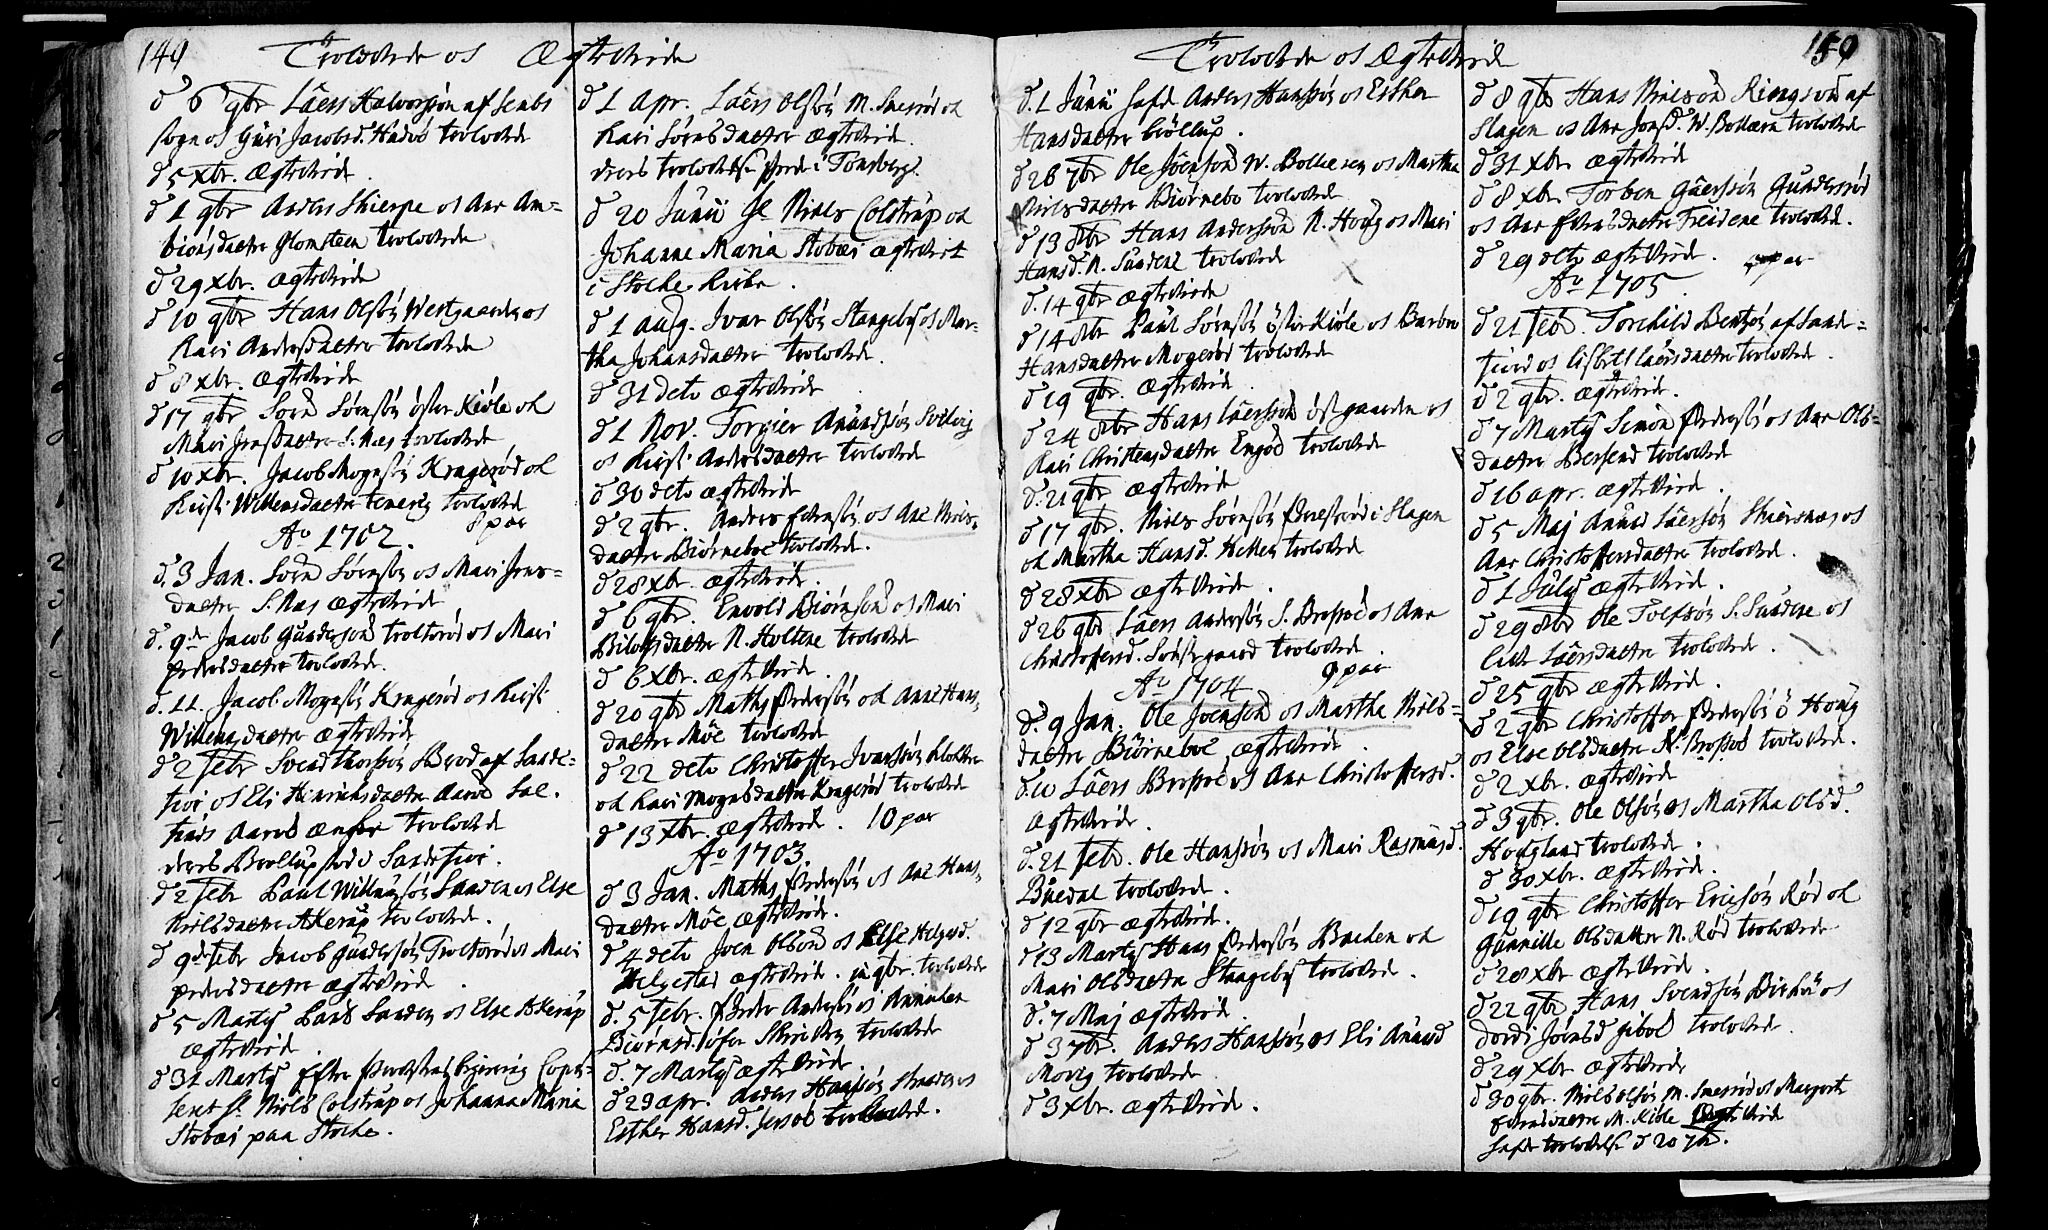 149
Trolovede os Ægtevide
d 6 9br Laers Halvorsøn af Sembs
sogn os Guri Jacobsd. Hudø trolovede
d 5 xbr. Ægtevide.
d 1 9br Anders Skierpe os Ane Am=
biørsdaeter Glomsteen trolovede
d 29 xbr. ægtevide
d 10 9br Hans Olssøn Westgaarden os
Kari Andersdaeter trolovede
d 8 xbr. Ægtevide
d 17 9br Sorn Sørnsøn øster Kiøle ok
Mari Jensdaeter S. Næs trolovede
d 10 xbr. Jacob Mognssøn Kragerød ok
Kirsti Willumsdaeter trolovede
8 par
Ao 1702.
d. 3 Jan. Sorn Sørnsøn os Mari Jens=
daeter S. Næs ægtevide
d. 9de Jacob Gundersøn os Mari
Pedersdaeter trolovede.
d. 11. Jacob Mognssøn Kragerød os Kirsti
Willumsdaeter ægtevide
d 2 febr Svend af Sande=
fior os Eli Hinrichsdaeter Aarøe Sal.
trolovede
deres Brøllup stod i Sandefior.
d 2 febr Paul Willumsøn Sanden os Else
Nielsdaeter Akerup trolovede.
d 9de febr Jacob Gundersøn os Mari
Pedersdaeter ægtevide.
d 5 Martij Paul Sanden os Else Akerup
ægtevide
d 31 Martij efter Provstens Copu=
leret Sr. Niels Colstrup os Johanna Maria
Stobæi paa Stocke.
d 1 Apr. Laers Olssøn M. Smerød ok
Kari Sørnsdaeter ægtevide.
deres trolovelse skede i Tønsberg.
d 20 Junii Hr Niels Colstrup ok
Johanne Maria Stobæi ægteviet
i Stocke Kirke.
d 1 Aug. Ivar Olssøn Stangeby os Mar=
tha Johansdaeter trolovede.
d 31 deto ægtevide
d 1 Nov. Torgier Amundsøn Solvig
os Kirsti Andersdaeter trolovede
d 30 deto ægtevide
d 2 9br. Anders os Ane Niels=
daeter Biørneboe trolovede.
d 28 xbr. ægtevide.
d 6 9br. Envold Biørnsøn os Mari
daeter N. Holtene trolovede
d 6 xbr. ægtevide.
d 20 9br Mathis Pedersøn ok Ane Hans=
daeter Møe trolovede
d 22 deto Christoffer Ivarssøn Klokker
ok Kari Mognsdaeter Kragerød trolovede
d 13 xbr. ægtevide. 10 par
Ao 1703.
d 3 Jan. Mathis Pedersøn os Ane Hans=
daeter Møe ægtevide.
d 4 deto Joen Olssøn os Else Helgesd.
Helgestad ægtevide. in 9br. trolovede
d. 5 febr. Peder Anderssøn os Annalen
Biørnsd. trolovede
d. 7 Martij ægtevide
d 29 apr. Anders Hanssøn os
Esther Hansd. Jersøe trolovede.
150
Trolovede os Ægtevide
d. 1 Junii hafde Anders Hanssøn os Esther
Hansdaeter brøllup.
d 26 7br Ole Joensøn W. Bollæren os Martha
Nielsdaeter Biørnebo trolovede
d 13 8br Hans Anderssøn N. Houg os Mari
Hansd. N. Sundene trolovede
d. 14 9br ægtevide
d 14 8br Paul Sørnsøn øster Kiøle os Barbro
Hansdaeter Mogerød trolovede
d 19 9br. ægtevide.
d 24 8br Hans Laerssøn østgaarden os
Kari Christensdaeter Engøe trolovede
d. 21 9br ægtevide
d 17 9br. Niels Sørnsøn i Slagen
ok Martha Hansd. trolovede
d 28 xbr ægtevide.
d 26 9br Laers Anderssøn S. Brossøe os Ane
Christoffersd. trolovede.
Ao 1704 9 par
d. 9 Jan. Ole Joensøn os Martha Niels=
daeter Biørneboe ægtevide.
d. 10 Laers Brossøe os Ane Christoffersd.
ægtevide.
d. 21 febr. Ole Hanssøn os Mari Rasmusd.
Buedal trolovede.
d 12 9br ægtevide.
d 13 Martij Hans Pedersøn Backen ok
Mari Olsdaeter Stangeby trolovede.
d. 7 Maj ægtevide.
d 3 7br. Anders Hanssøn os Eli Amund
trolovede
d 3 xbr. ægtevide.
d 8 9br Hans Nielssøn af
Slagen os Ane Jonsd. W. Bollæren trolovede
d 31 xbr ægtevide
d 8 xbr. Torben Gaerssøn Gunderrød
os Ane daeter Treidene trolovede.
d 29 deto ægtevide. par
Ao 1705.
d 21 febr. Torchild Bentsøn af Sande=
fiord os Lisbet Laersdaeter trolovede.
d 2 9br. ægtevide.
d 7 Martij Simon Pedersøn os Ane Ols=
daeter trolovede
d 16 apr. ægtevide.
d 5 Maj Amund Laerssøn Skiersnæs os
Ane Christoffersdaeter trolovede.
d 1 Julij ægtevide.
d 29 8br Ole Tolfsøn S. Sundene os
Laersdaeter trolovede.
d 25 9br ægtevide.
d 2 9br Christoffer Pedersøn ø Houg
os Else Olsdaeter N. Brossøe trolovede.
d 2 xbr. ægtevide
d 3 9br. Ole Olssøn os Martha Olsd.
Hougland trolovede.
d 30 xbr. ægtevide.
d 19 9br Christoffer Ericssøn Rød ok
Gunnille Olsdatter N. Rød trolovede
d 28 xbr ægtevide.
d 22 9br Hans Svendsøn os
Dordi Joensd Gibøe trolovede.
d 29 xbr ægtevide
d 30 9br. Niels Olssøn M. Smerød os Margrete
daeter M. Kiøle ægtevide
hafde trolovelse d 20 7br.